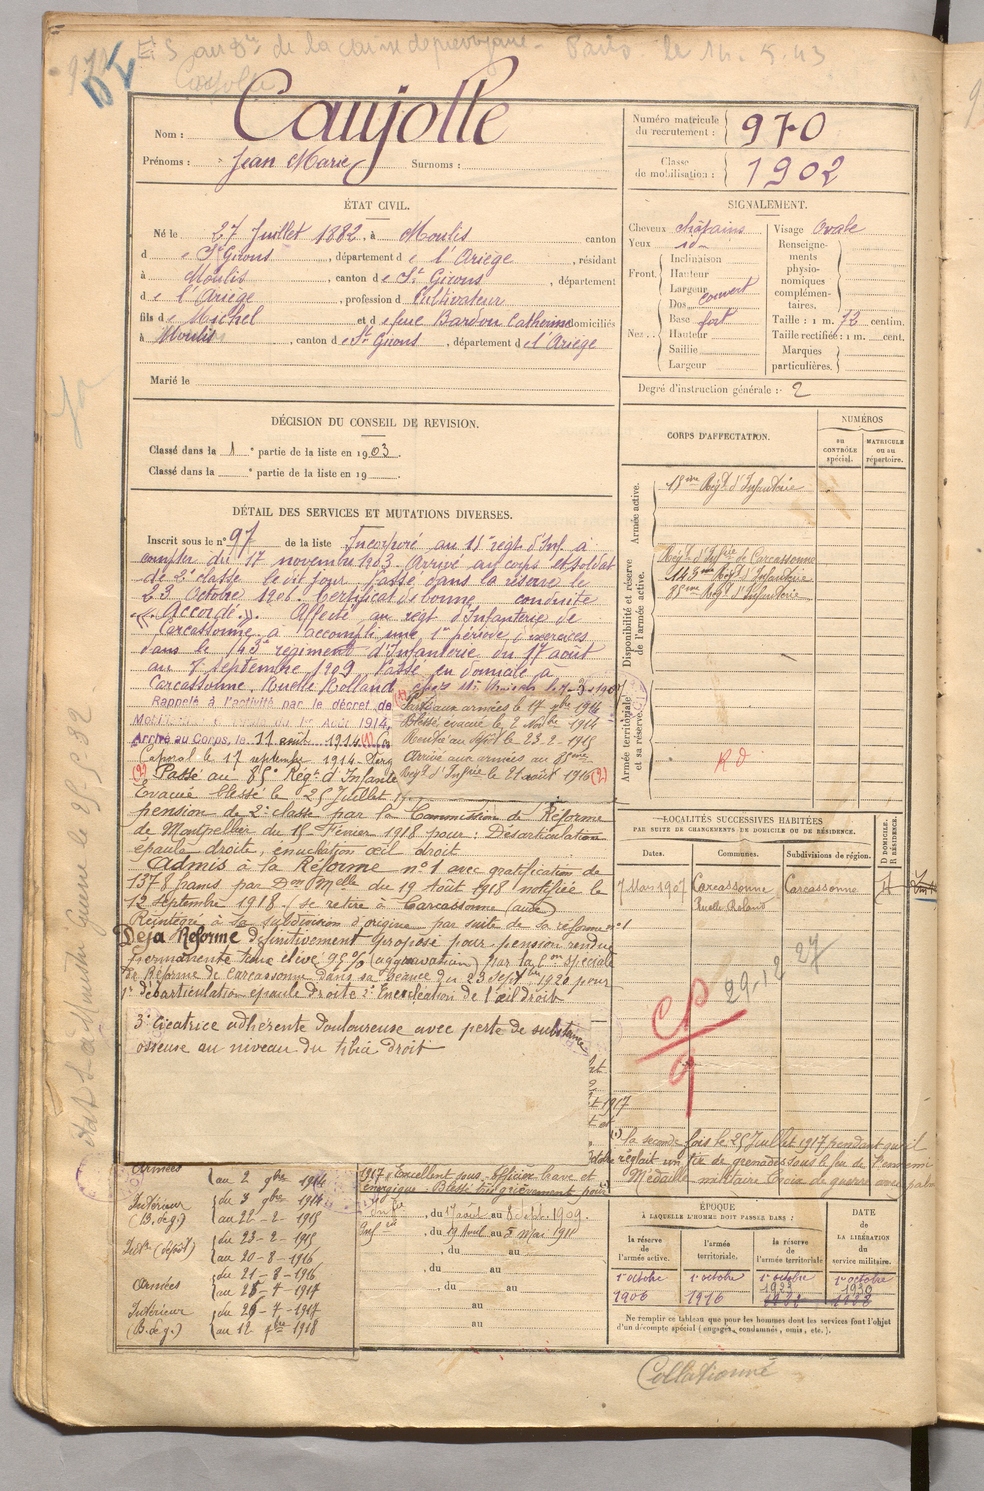 de la caisse de prévoyance - Paris le 14.5.43
Caujolle
Nom : Caujolle
Prénoms : Jean Marie Surnoms :
Numéro matricule du recrutement : 970
Classe de mobilisation : 1902
ÉTAT CIVIL.
Né le 27 Juillet 1882, à Moulis canton
d e St Girons, département d e l'Ariège, résidant
à Moulis, canton d e St Girons, département
d e l'Ariège, profession d Cultivateur
fils d e Michel et d e feue Bardou Catherine domiciliés
à Moulis, canton d e St Girons, département d e l'Ariège
Marié le
SIGNALEMENT.
Cheveux châtains Visage Ovale
Yeux id
Front. Inclinaison
Hauteur
Largeur
Dos couvert
Nez. Base fort
Hauteur
Saillie
Largeur
Renseignements physionomiques complémentaires.
Taille : 1 m. 72 centim.
Taille rectifiée : 1 m. cent.
Marques particulières.
Degré d'instruction générale : 2
DÉCISION DU CONSEIL DE REVISION.
Classé dans la 1e partie de la liste en 1903.
Classé dans la e partie de la liste en 19
DÉTAIL DES SERVICES ET MUTATIONS DIVERSES.
Inscrit sous le n° 97 de la liste Incorporé au 15e régt d'Inf à
compter du 17 novembre 1903. Arrivé au corps et soldat
de 2e classe le dit jour. Passé dans la réserve le
23 Octobre 1906. Certificat de bonne conduite
"Accordé". Affecté au régt d'Infanterie de
Carcassonne, a accompli une 1re période d'exercices
dans le 143e régiment d'Infanterie du 17 août
au 7 septembre 1909. Passé en domicile à
Carcassonne, Ruelle Rolland le 7-3-1907
Rappelé à l'activité par le décret de
Mobilisation du 1er Août 1914.
Arrivé au Corps, le 11 août 1914 (1)
Caporal le 17 septembre 1914
(1) Parti aux armées le 17 7bre 1914
Blessé évacué le 2 Novbre 1914
Rentré au dépôt le 23-2-1915
Arrivé aux armées au 85eme
Régt d'Infrie le 21 août 1916 (2)
(2) Passé au 85e Régt d'Infant
Évacué blessé le 25 Juillet
pension de 2e classe par la Commission de Réforme
de Montpellier du 15 Février 1918 pour : Désarticulation
épaule droite, énucléation œil droit
Admis à la Réforme n° 1 avec gratification de
1378 francs par Don Melle du 19 Août 1918 notifiée le
12 Septembre 1918. se retire à Carcassonne (aude)
Réintégré à sa subdivision d'origine par suite de sa réforme n° 1
Déjà Réformé définitivement proposé pour pension rendue
permanente taux élevé 95% (aggravation) par la Con spéciale
de Réforme de Carcassonne dans sa séance du 23 Septbre 1920 pour
1° désarticulation épaule droite 2° Énucléation de l'œil droit
3° cicatrice adhérente douloureuse avec perte de substance
osseuse au niveau du tibia droit
CORPS D'AFFECTATION.
NUMÉROS
au CONTRÔLE spécial.
MATRICULE ou au répertoire.
Armée active.
15eme Régt d'Infanterie
Disponibilité et réserve de l'armée active.
Régt d'Infrie de Carcassonne
143eme Régt d'Infanterie
85eme Régt d'Infanterie
Armée territoriale et sa réserve.
RD
LOCALITÉS SUCCESSIVES HABITÉES
PAR SUITE DE CHANGEMENTS DE DOMICILE OU DE RÉSIDENCE.
Dates. Communes. Subdivisions de région. D DOMICILE. R RÉSIDENCE.
7 Mars 1907 Carcassonne Carcassonne
Ruelle Roland
29.12 27
CP
9
la seconde fois le 25 Juillet 1917 pendant qu'il
réglait un tir de grenades sous le feu de l'ennemi
Médaille militaire Croix de guerre avec palme
1917 "Excellent sous-officier brave et
énergique. Blessé très grièvement pour
Armées au 2 9bre 1914
Intérieur du 3 9bre 1914
(B. de g.) au 22-2-1915
Intr (dépôt) du 23-2-1915
au 20-8-1916
Armées du 21-8-1916
au 25-4-1917
Intérieur du 26-4-1917
(B. de g.) au 12 7bre 1918
, du 17 août au 8 Sept 1909.
, du 19 Avril au 5 Mai 1911
, du au
, du au
, du au
au
au
ÉPOQUE
À LAQUELLE L'HOMME DOIT PASSER DANS :
la réserve de l'armée active. l'armée territoriale. la réserve de l'armée territoriale
DATE de LA LIBÉRATION du service militaire.
1er octobre 1er octobre 1er octobre 1er octobre
1906 1916
Ne remplir ce tableau que pour les hommes dont les services font l'objet
d'un décompte spécial (engagés, condamnés, omis, etc.).
Collationné